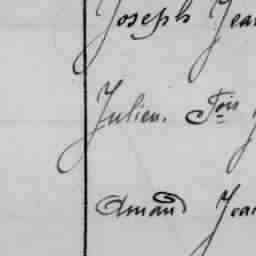 Joseph Jean
Julien. Fois J
Amand Jean